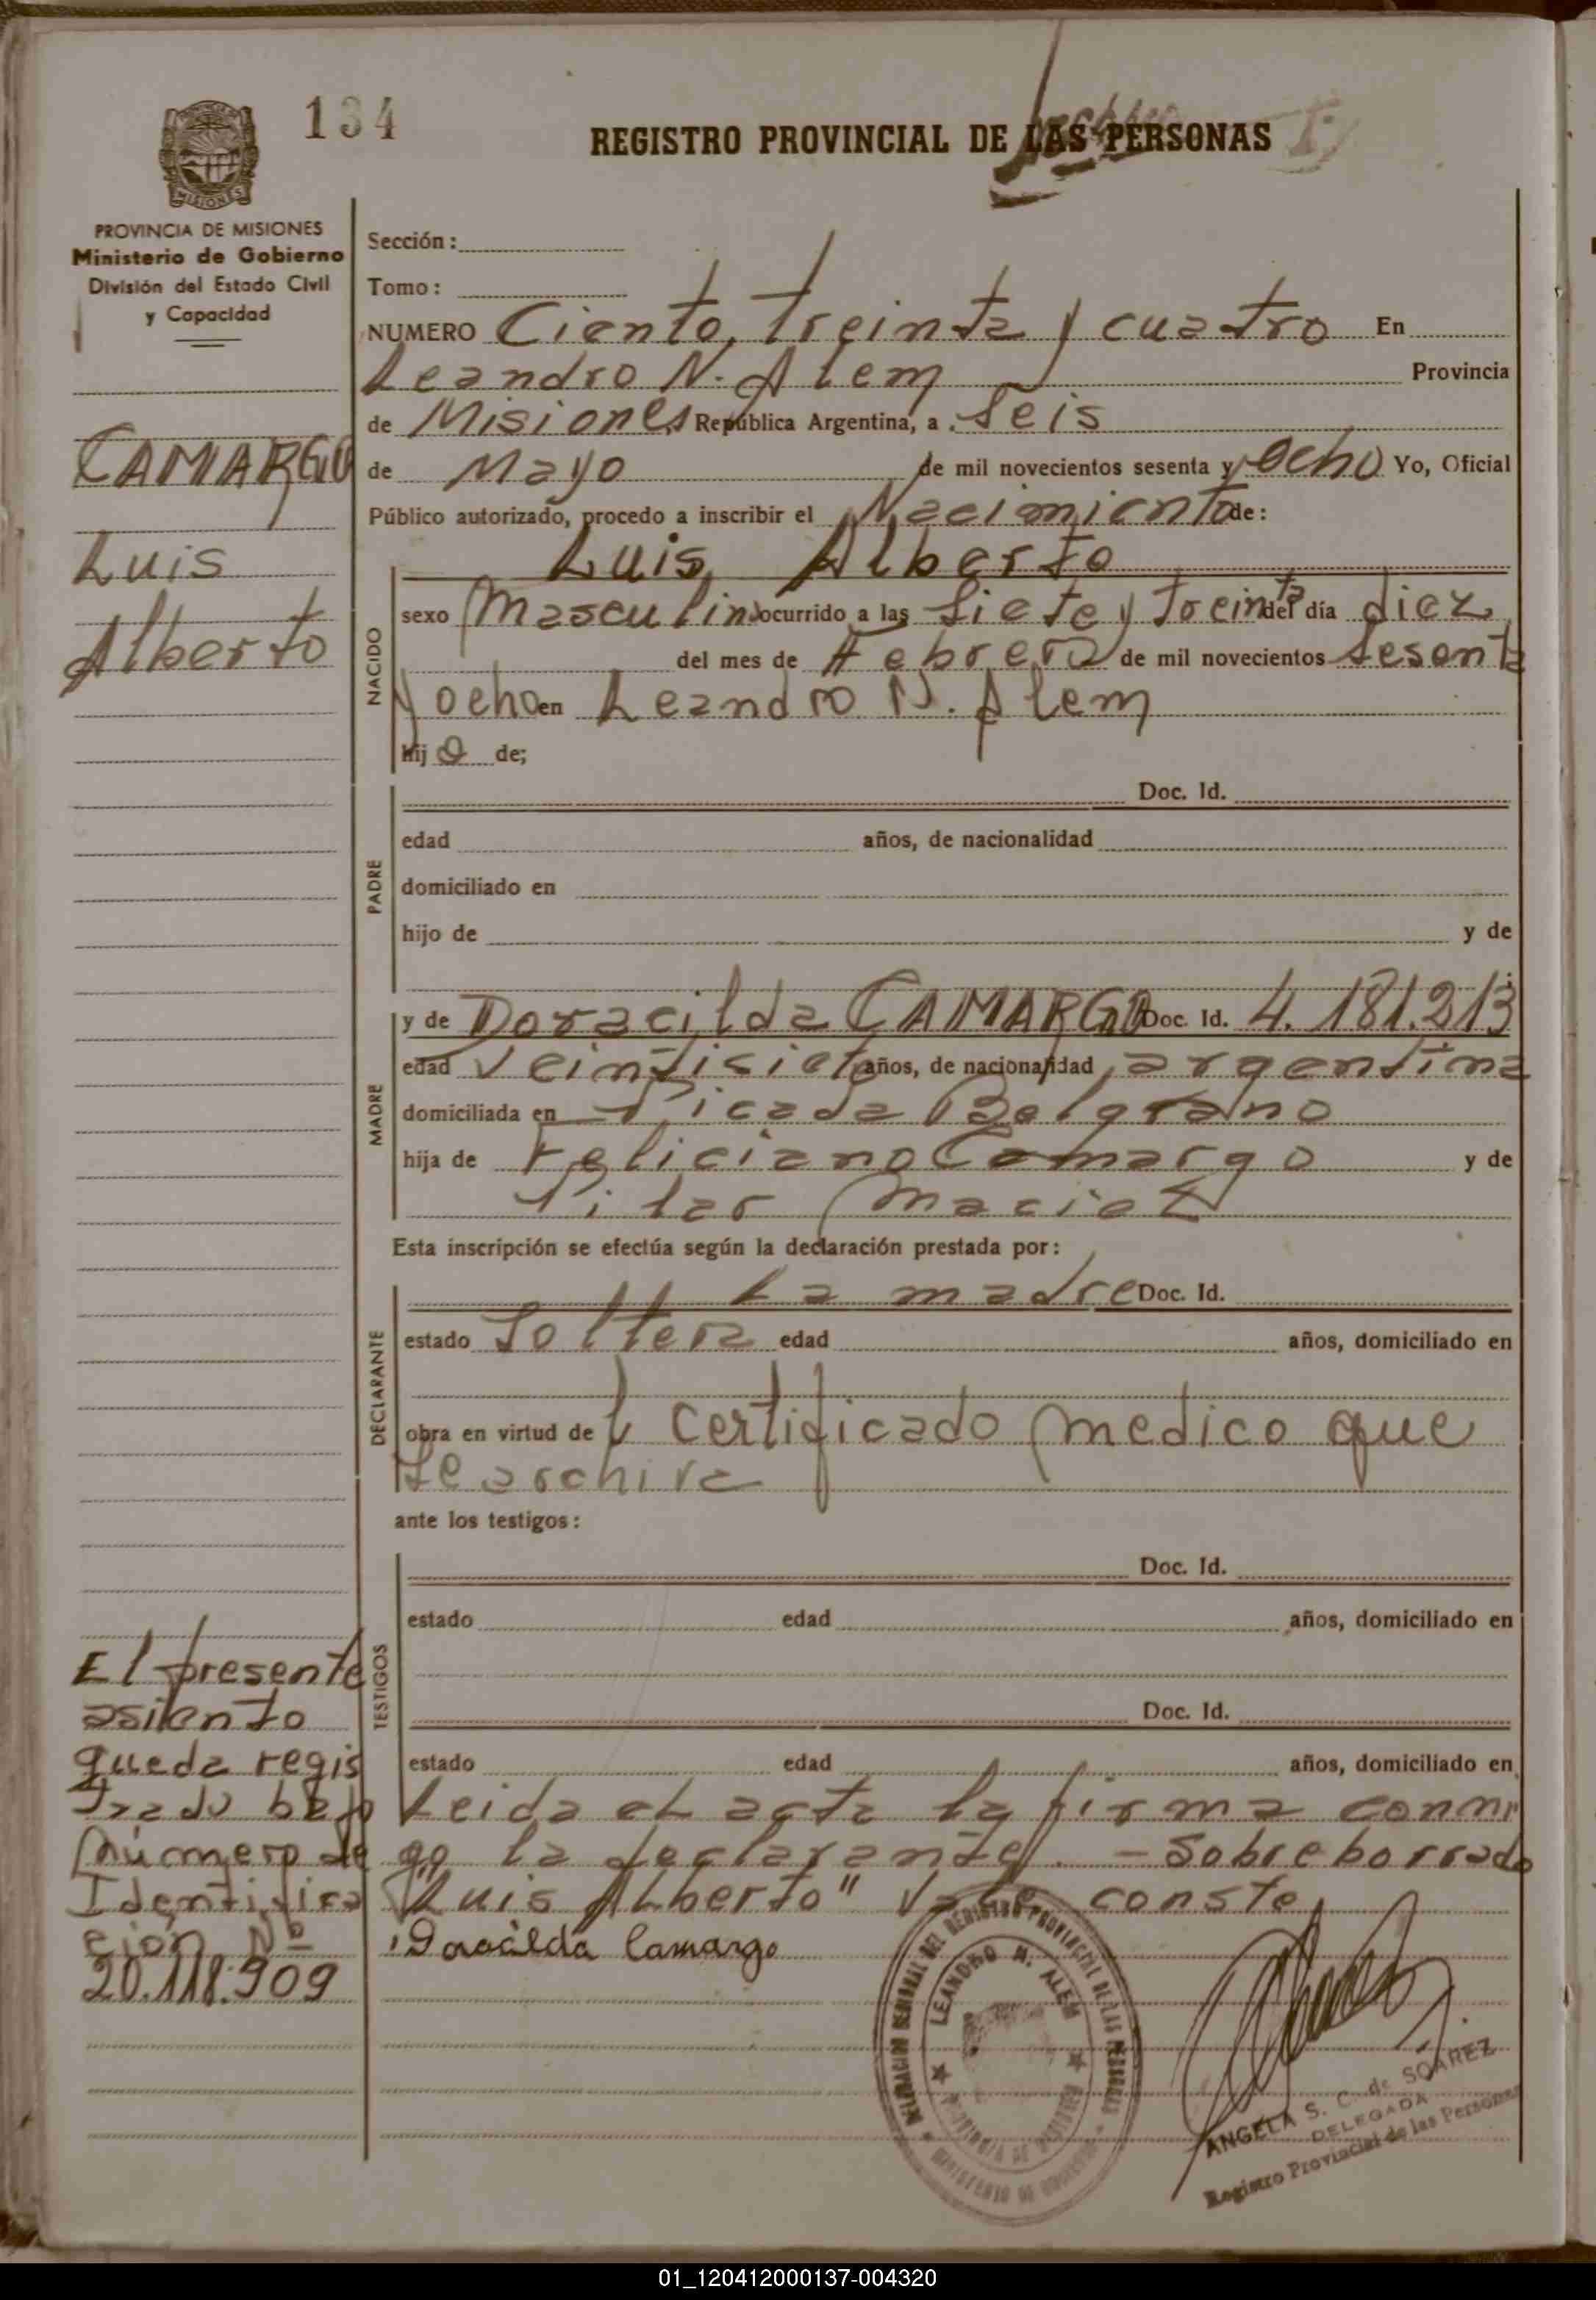 134
REGISTRO PROVINCIAL DE LAS PERSONAS
PROVINCIA DE MISIONES
Ministerio de Gobierno
División del Estado Civil
y Capacidad
CAMARGO
Luis
Alberto
Sección:
Tomo:
NUMERO Ciento treinta y cuatro En
Leandro N. Alem Provincia
de Misiones República Argentina, a Seis
de Mayo de mil novecientos sesenta y ocho Yo, Oficial
Público autorizado, procedo a inscribir el Nacimiento de:
Luis Alberto
NACIDO
sexo Masculino ocurrido a las Siete y Treinta del día diez
del mes de Febrero de mil novecientos Sesenta
y ocho en Leandro N. Alem
hijo de;
PADRE
Doc. Id.
edad años, de nacionalidad
domiciliado en
hijo de y de
MADRE
y de Doracilda CAMARGO Doc. Id. 4.181.213
edad Veintisiete años, de nacionalidad argentina
domiciliada en Picada Belgrano
hija de Feliciano Camargo y de
Pilar Maciel
Esta inscripción se efectúa según la declaración prestada por:
DECLARANTE
La madre Doc. Id.
estado Soltera edad años, domiciliado en
obra en virtud de l certificado medico que
se archiva
ante los testigos:
TESTIGOS
Doc. Id.
estado edad años, domiciliado en
Doc. Id.
estado edad años, domiciliado en
Leida el acta la firma conmi
go la declarante. - Sobreborrado
"Luis Alberto" Vale conste
Doracilda Camargo
El presente
asiento
queda regis
trado bajo
número de
Identifica
ción Nº
20.118.909
DELEGACION REGIONAL DEL REGISTRO PROVINCIAL DE LAS PERSONAS
LEANDRO N. ALEM
PROVINCIA DE MISIONES
MINISTERIO DE GOBIERNO
ANGELA S. C. de SOAREZ
DELEGADA
Registro Provincial de las Personas
01_120412000137-004320